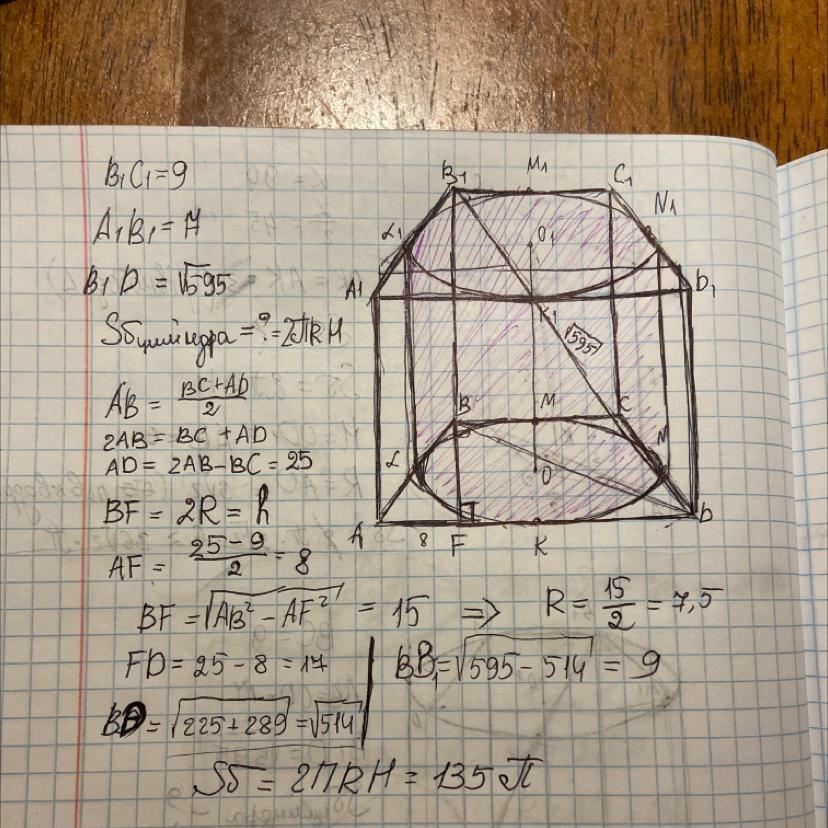 B₁C₁=9
A₁B₁=17
B₁D=√595
Sбцилиндра=?=2ПRH
AB = (BC+AD)/2
2AB = BC + AD
AD = 2AB-BC = 25
BF = 2R = h
AF = (25-9)/2 = 8
BF = √(AB²-AF²) = 15 => R = 15/2 = 7,5
FD = 25-8 = 17
BB₁=√(595-514) = 9
BD = √(225+289) = √514
Sб = 2ПRH = 135П
B₁ M₁ C₁
L₁ O₁ N₁
A₁ K₁ D₁
√595
B M C
L O N
A 8 F K D